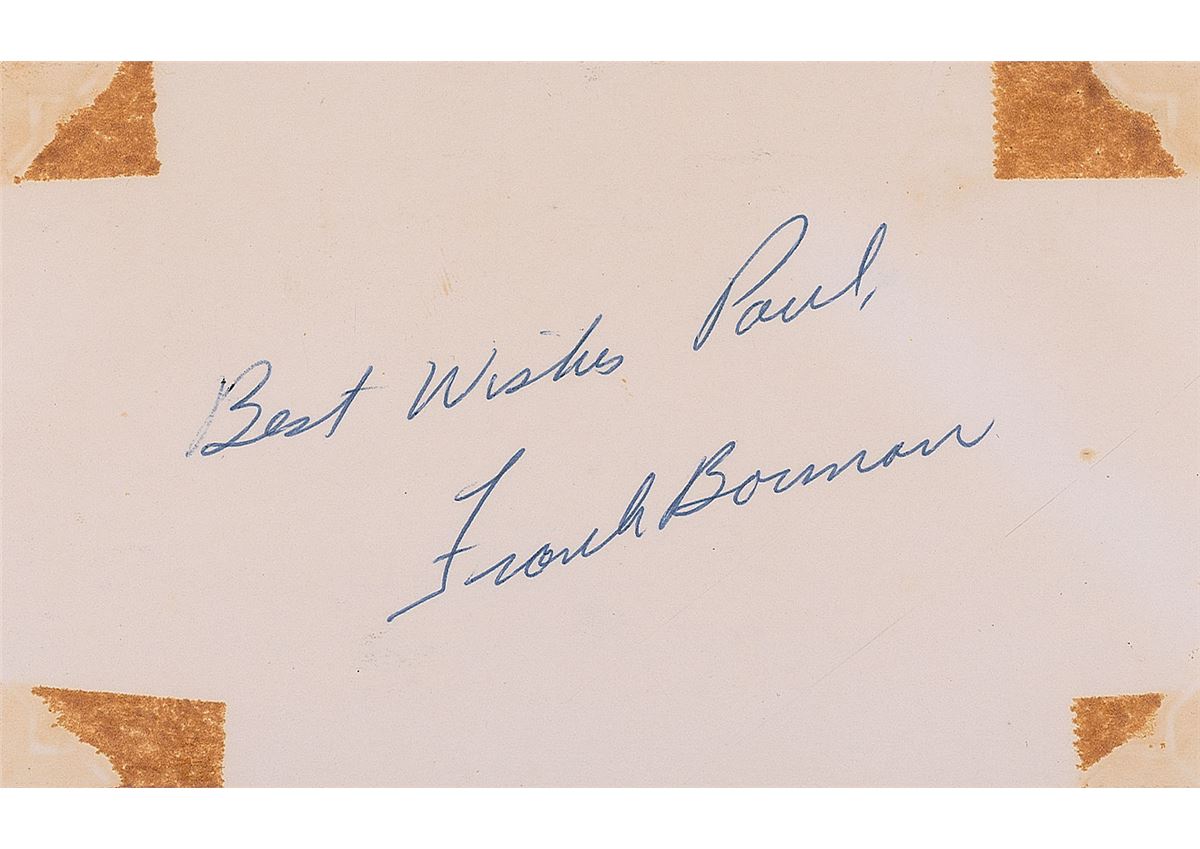 Best Wishes Paul,
Frank Borman